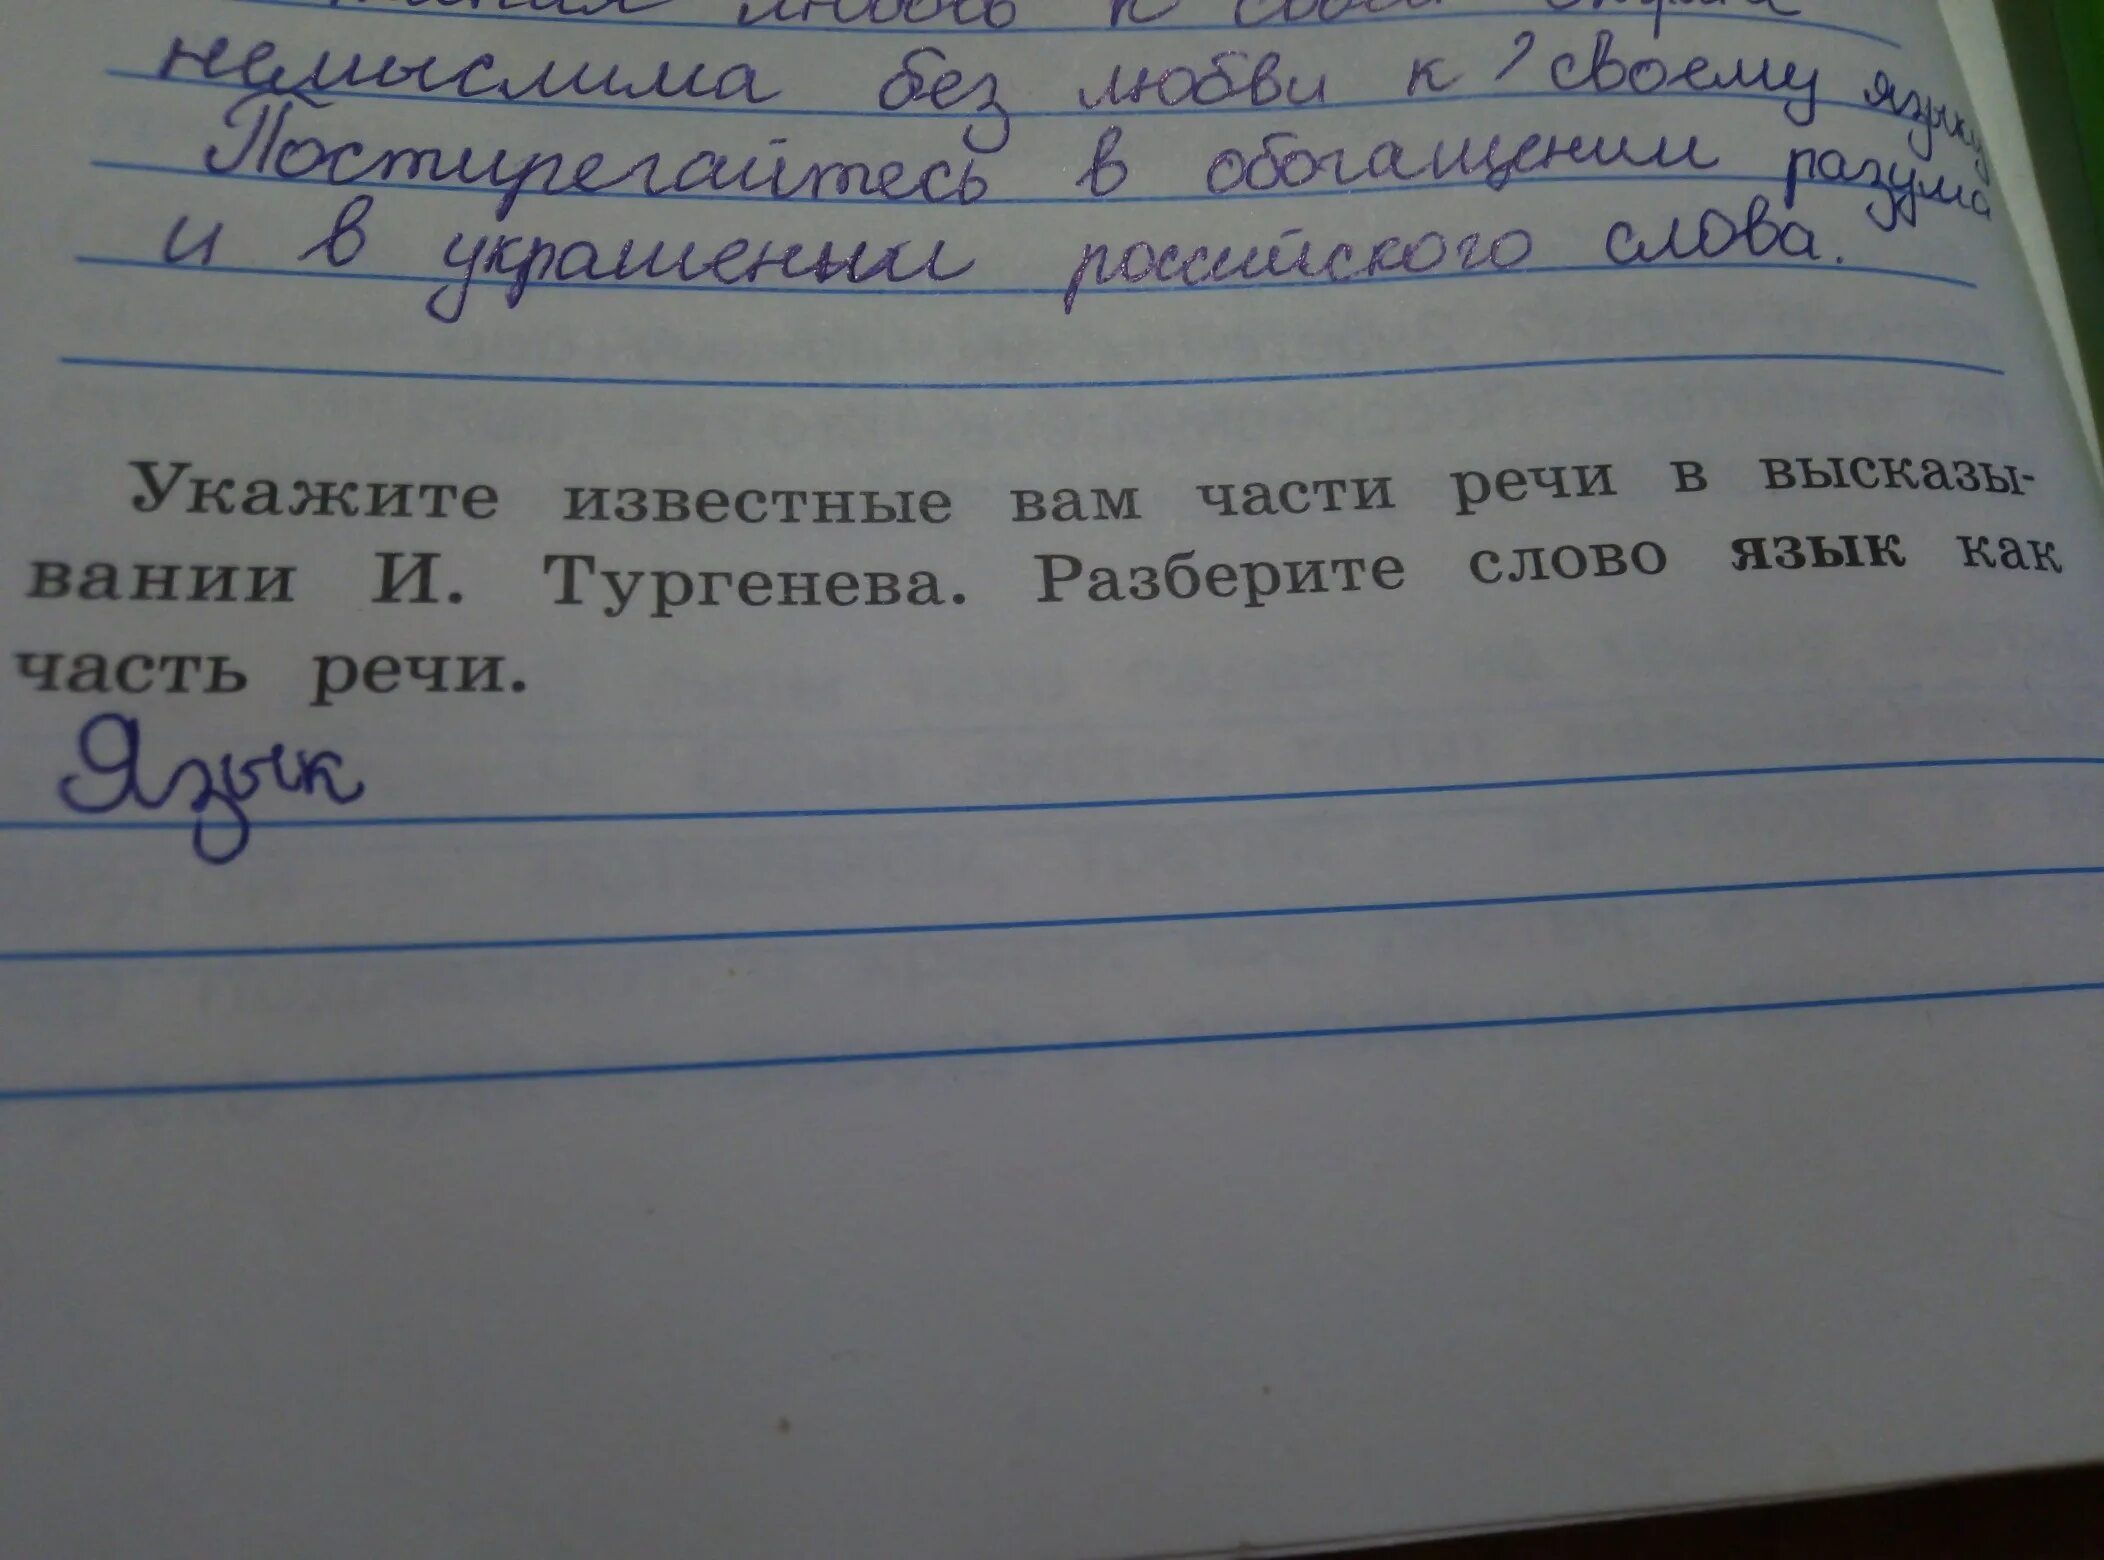 любовь к своей
немыслима без любви к своему языку
Постирегайтесь в обогащении разума
и в украшении российского слова.
Укажите известные вам части речи в высказы-
вании И. Тургенева. Разберите слово язык как
часть речи.
Язык